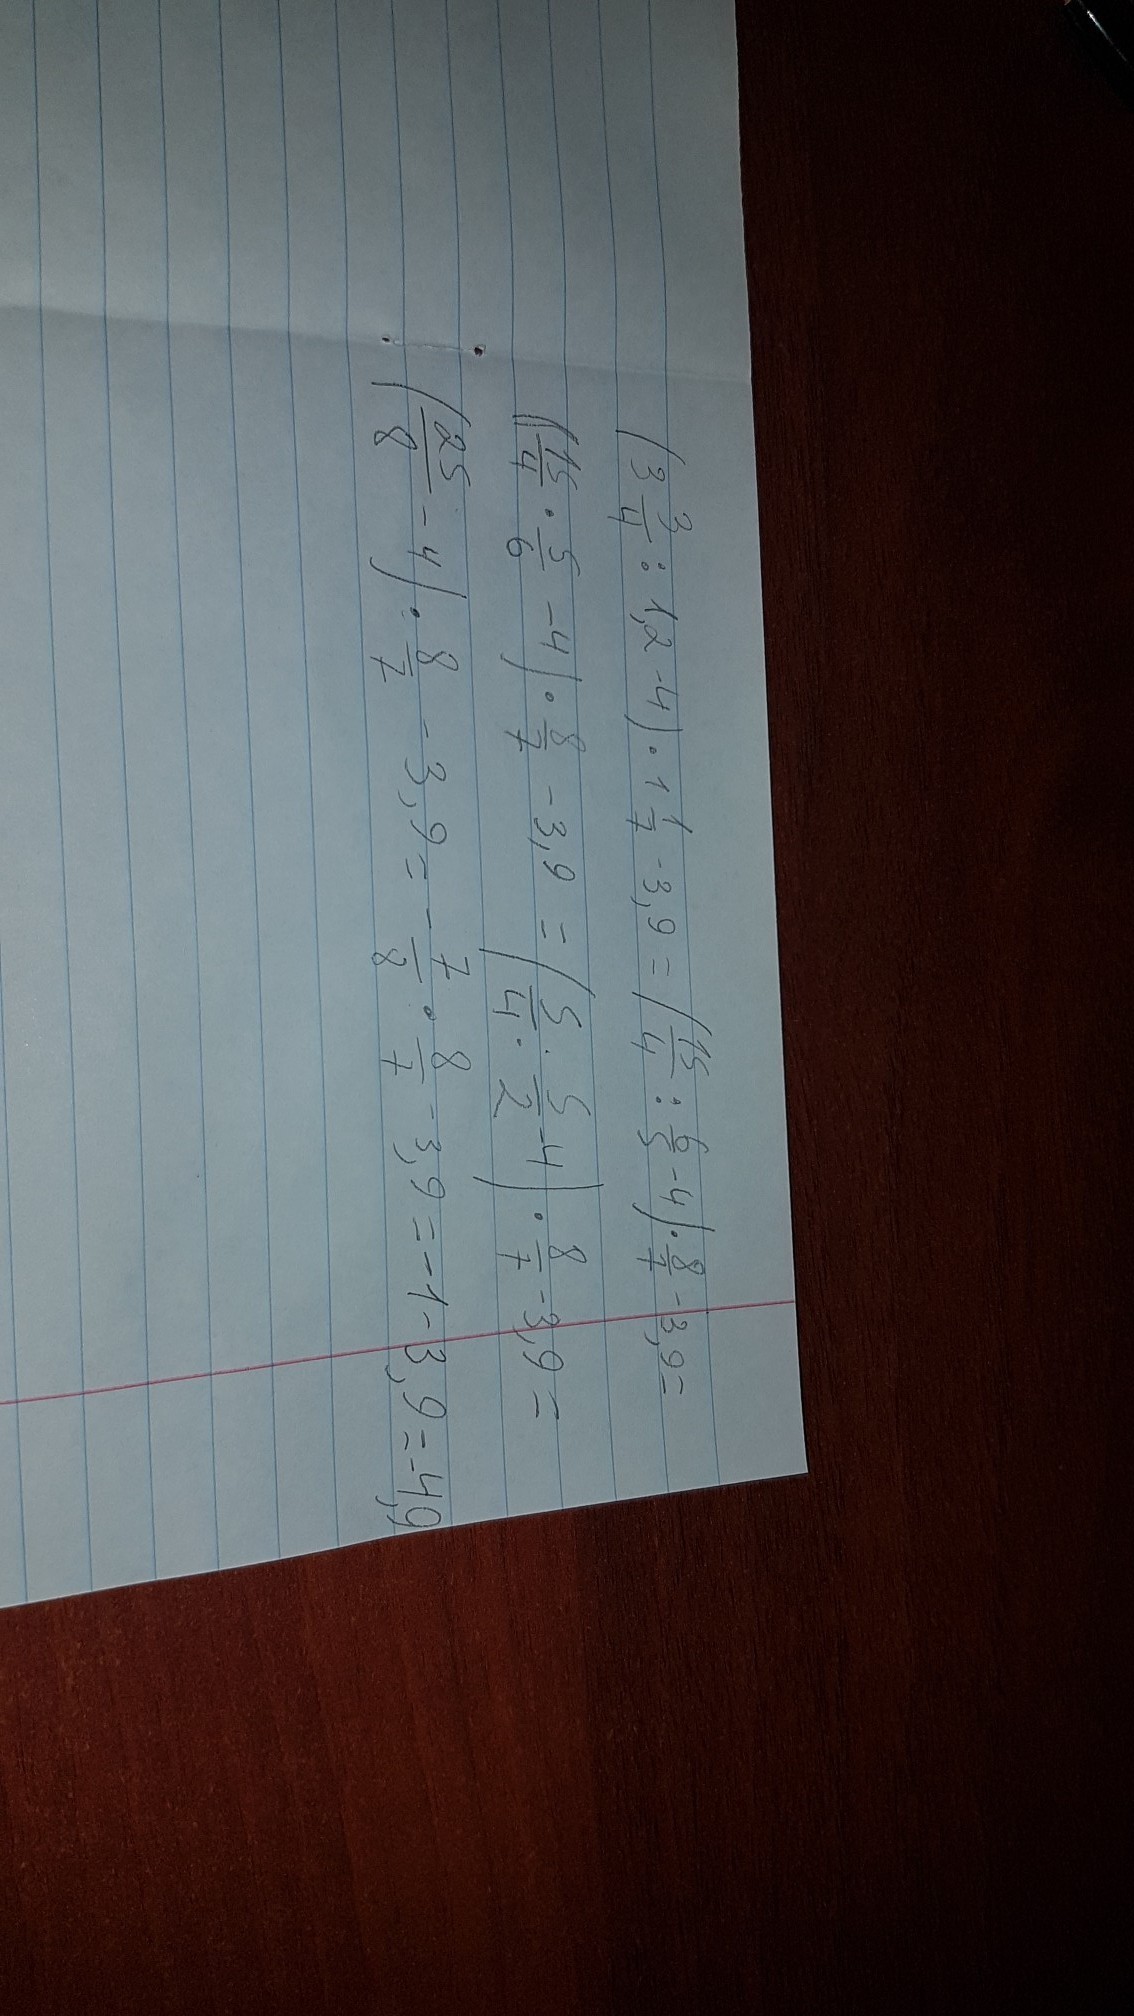 (3 3/4 : 1,2 - 4) · 1 1/7 - 3,9 = (15/4 : 6/5 - 4) · 8/7 - 3,9 =
(15/4 · 5/6 - 4) · 8/7 - 3,9 = (5/4 · 5/2 - 4) · 8/7 - 3,9 =
(25/8 - 4) · 8/7 - 3,9 = -7/8 · 8/7 - 3,9 = -1 - 3,9 = -4,9